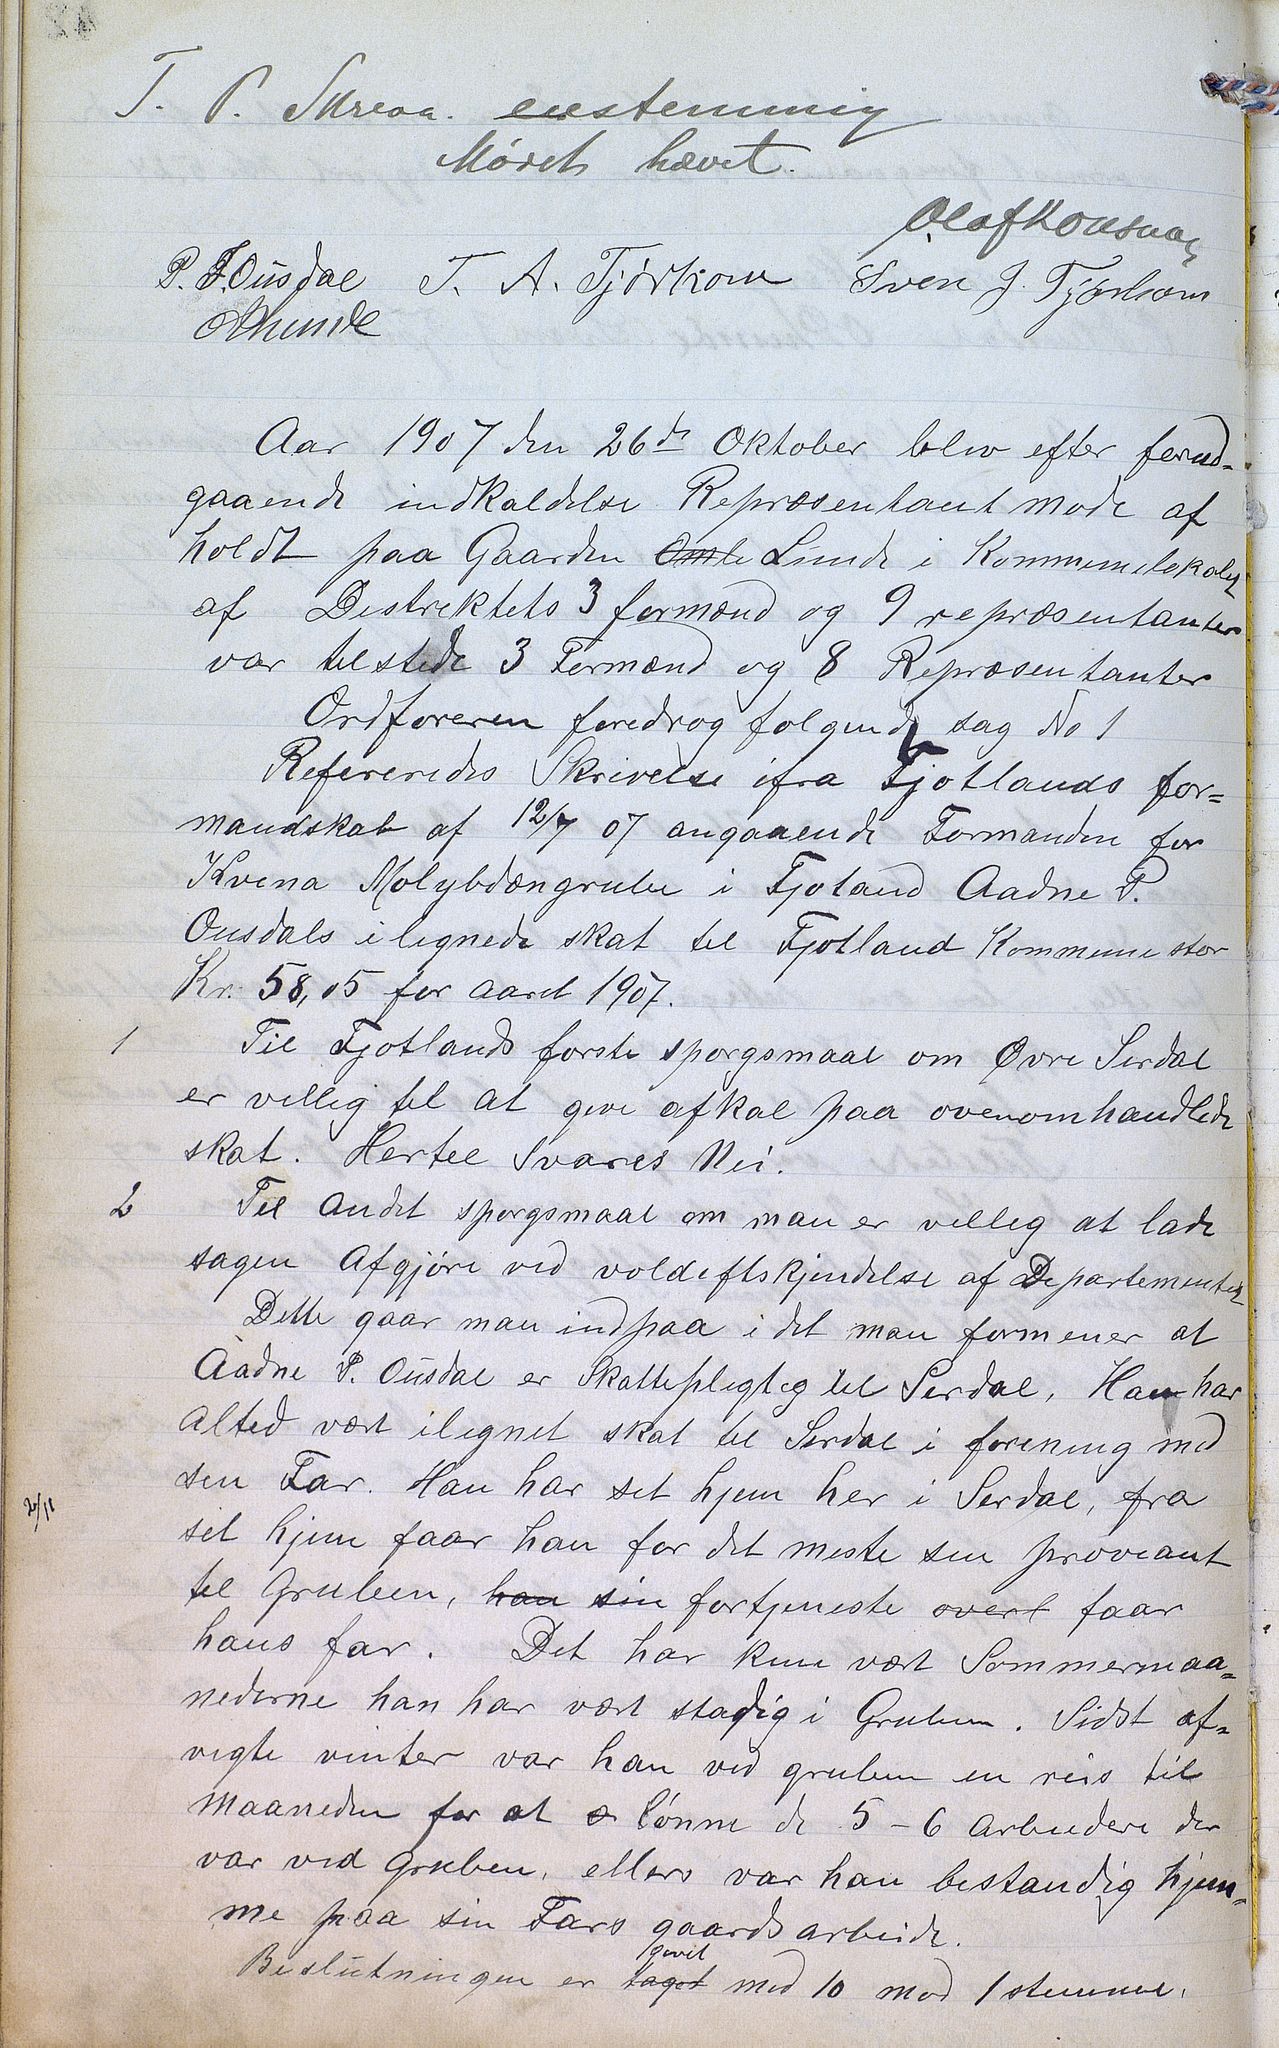 T. P. Skreaa. enstemmig
Mødet hævet.
Olaf Kousnaa
P. T. Ousdal T. A. Tjørhom Sven J. Tjørhom
Aar 1907 den 26de Oktober blev efter forud-
gaaende indkaldelse Repræsentant møde af
holdt paa Gaarden Omli Lunde i Kommunelokalet
af Destriktets 3 formænd og 9 repræsentanter
var tilstede 3 Formænd og 8 Repræsentanter
Ordføreren foredrog følgende sag No 1
Refereredes Skrivelse ifra Fjotlands for-
mandskab af 12/7 07 angaaende Formanden for
Kvina Molybdængrube i Fjotland Aadne P.
Ousdals ilignede skat til Fjotland Kommune stor
Kr. 58,05 for aaret 1907.
1 Til Fjotlands første spørgsmaal om Øvre Sirdal
er villig til at give afkal paa ovenomhandlede
skat. Hertil Svares Nei.
2 Til andet spørgsmaal om man er villig at lade
sagen Afgjøre ved voldgiftskjendelse af Departementet
Dette gaar man indpaa i det man formener at
Aadne P. Ousdal er Skattepligtig til Sirdal, Han har
altid vært ilignet skat til Sirdal i forening med
sin Far. Han har sit hjem her i Serdal, fra
2/11
sit hjem faar han for det meste sin proviant
til Gruben, han sin fortjeneste overl faar
hans far. Det har kun vært Sommermaa-
nederne han har vært stadig i Gruben. Sidst af-
vigte vinter var han ved gruben en reis til
Maaneden for at s lønne de 5 - 6 Arbeidere der
var ved gruben, ellers var han bestandig hjem-
me paa sin Fars gaardsarbeide.
givet
Beslutningen er taget med 10 mod 1 stemme.